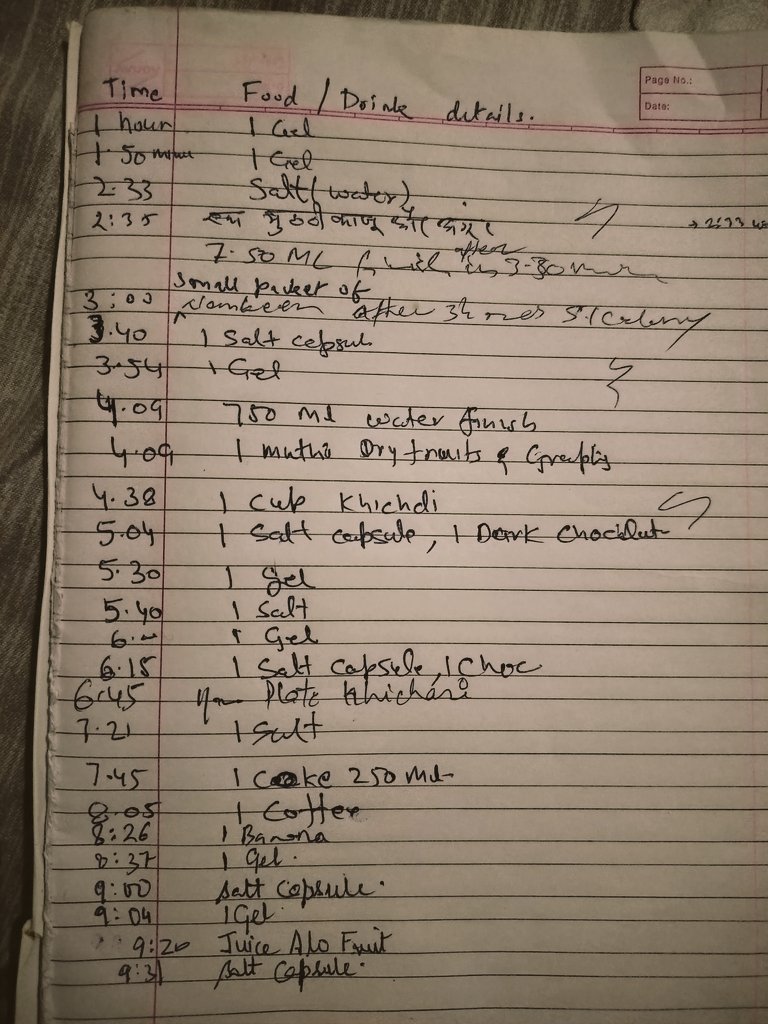 Page No.:
Date:
Time Food / Drink details.
1 hour 1 Gel
1.50 1 Gel
2.33 Salt (water)
2:35 एक मुठ्ठी काजू और
7.50 ML after 3-30
small packet of
3:00 Namkeen after
3.40 1 Salt capsul
3.54 1 Gel
4.09 750 Ml water finish
4.09 1 mutha Dry fruits &
4.38 1 Cup Khichdi
5.04 1 Salt capsule, 1 Dark Chocklut
5.30 1 gel
5.40 1 salt
6.- 1 Gel
6.15 1 Salt capsule, 1 Choc
6.45 Plate Khichdi
7.21 1 Salt
7.45 1 Coke 250 Ml
8.05 1 Coffee
8:26 1 Banana
8:37 1 Gel.
9:00 salt capsule.
9:04 1 Gel.
9:20 Juice Alo Fruit
9:31 salt capsule.